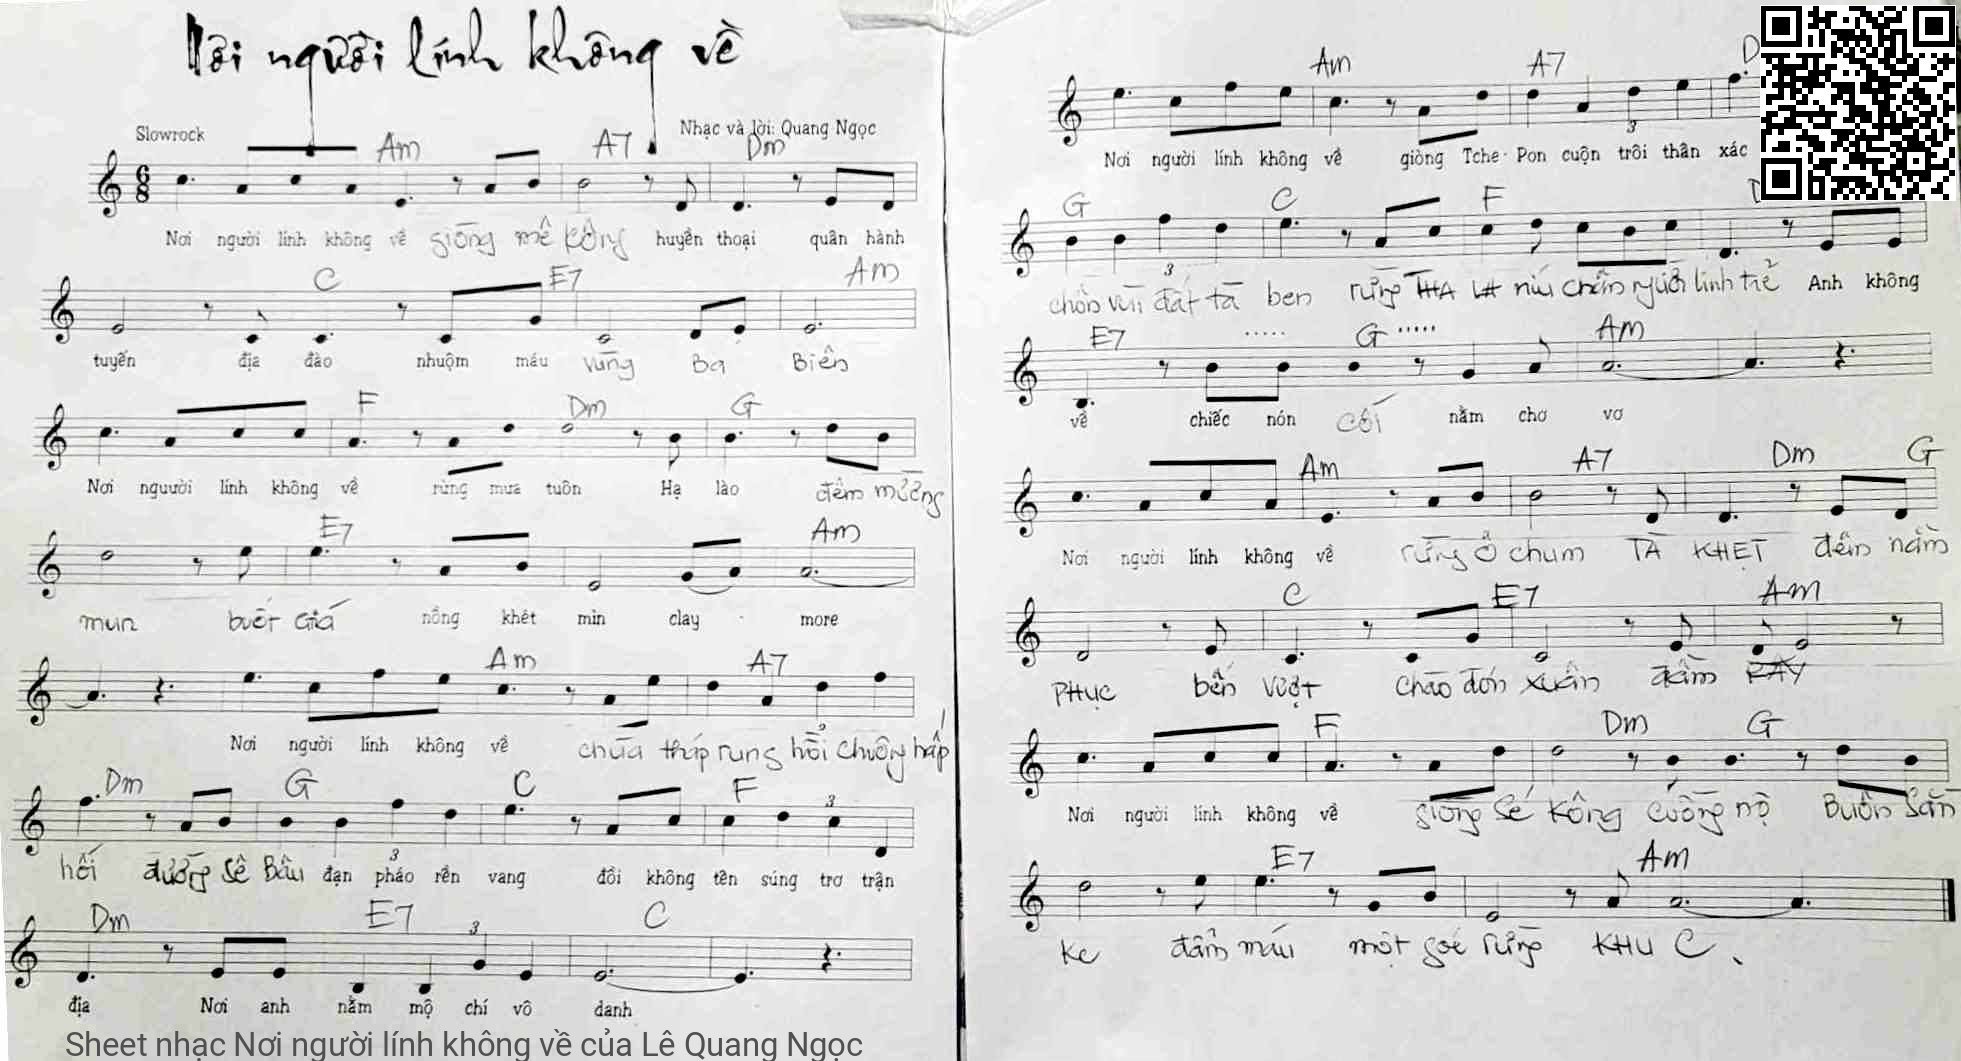 Nơi người lính không về
Slowrock
Nhạc và lời: Quang Ngọc
Am A7 Dm
6
8
Nơi người lính không về giòng mê Kông huyền thoại quân hành
C E7 Am
tuyến địa đào nhuộm máu vùng Ba Biên
F Dm G
Nơi nguười lính không về rừng mưa tuôn Hạ lào đêm mường
E7 Am
mun buốt Giá nồng khét mìn clay - more
Am A7
Nơi người lính không về chùa tháp rung hồi chuông hấp
3
Dm G C F
3
hối đường Sê Bâu đạn pháo rền vang đồi không tên súng trơ trận
3
Dm E7 C
3
địa Nơi anh nằm mộ chí vô danh
Sheet nhạc Nơi người lính không về của Lê Quang Ngọc
Am A7
3
Nơi người lính không về giòng Tche-Pon cuộn trôi thân xác
G C F
3
chôn vùi đất tà ben rừng níu chân người lính trẻ Anh không
E7 ..... G ..... Am
về chiếc nón cối nằm chơ vơ
Am A7 Dm G
Nơi người lính không về rừng Ô chum TÀ KHẸT đêm nằm
C E7 Am
PHỤC bến vượt chào đón xuân đẫm
F Dm G
Nơi người lính không về giòng Sê Kông cuồng nộ Buôn Sân
E7 Am
Ke đẫm máu một goé rừng KHU C.